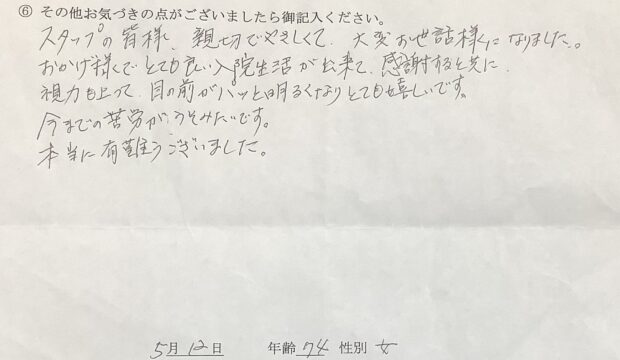 ⑥ その他お気づきの点がございましたら御記入ください。
スタッフの皆様、親切でやさしくて、大変お世話様になりました。
おかげ様でとても良い入院生活が出来て、感謝すると共に、
視力も上って、目の前がパッと明るくなりとても嬉しいです。
今までの苦労がうそみたいです。
本当に有難うございました。
5月12日 年齢 74 性別 女